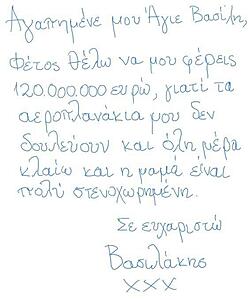 Αγαπημένε μου Άγιε Βασίλη,
Φέτος θέλω να μου φέρεις
120.000.000 ευρώ, γιατί τα
αεροπλανάκια μου δεν
δουλεύουν και όλη μέρα
κλαίω και η μαμά είναι
πολύ στενοχωρημένη.
Σε ευχαριστώ
Βασιλάκης
xxx